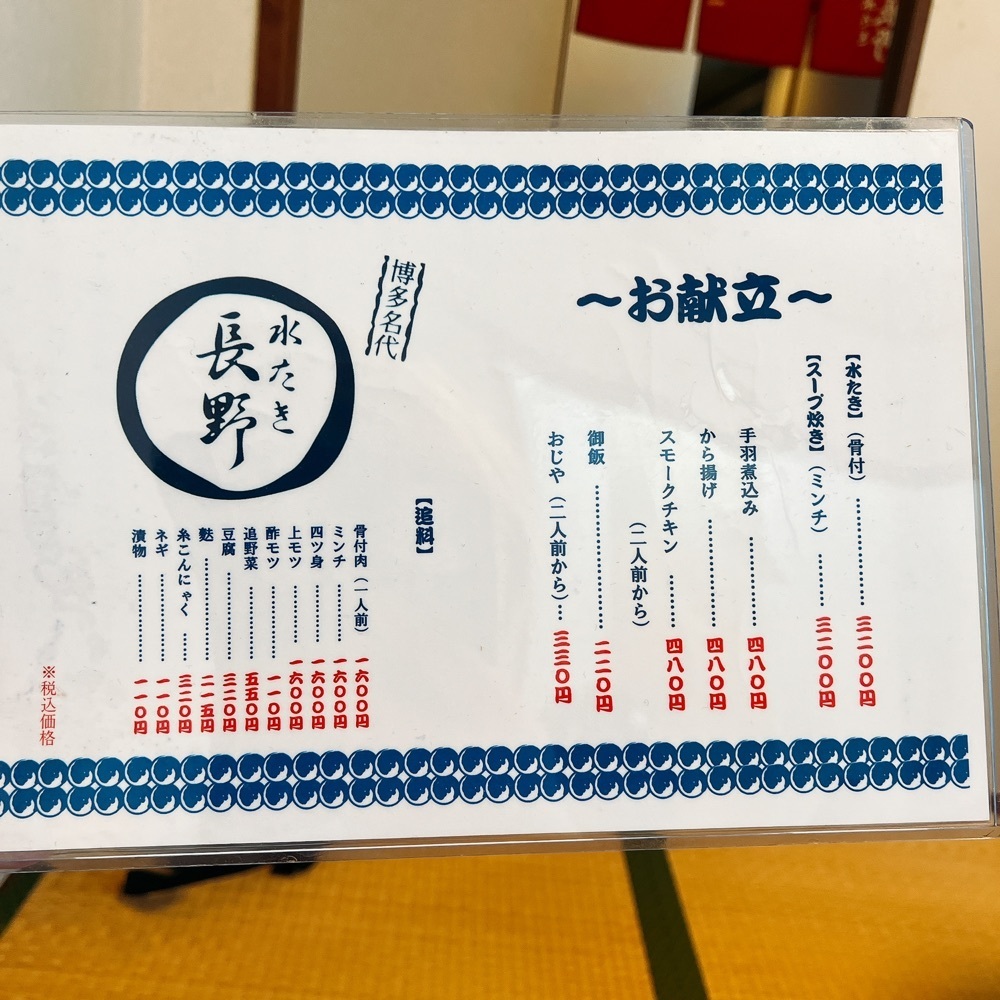 ~お献立~
【水たき】(骨付)…………………三二〇〇円
【スープ炊き】(ミンチ)………三二〇〇円
手羽煮込み……………四八〇円
から揚げ………………四八〇円
スモークチキン………四八〇円
(二人前から)
御飯……………………二二〇円
おじや(二人前から)…三三〇円
博多名代
水たき
長野
【追料】
骨付肉(一人前)一六〇〇円
ミンチ…………一六〇〇円
四ツ身…………一六〇〇円
上モツ…………一六〇〇円
酢モツ……………一一〇円
追野菜……………五五〇円
豆腐………………三二〇円
麩…………………二一五円
糸こんにゃく……三二〇円
ネギ………………一一〇円
漬物………………一一〇円
※税込価格